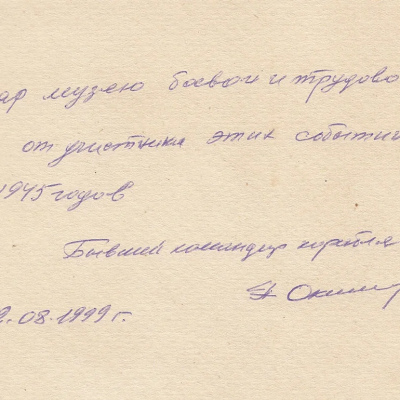 ар музею боевой и трудово
от участника этих событи
1945 годов
Бывший командир корабля
.08.1999 г.